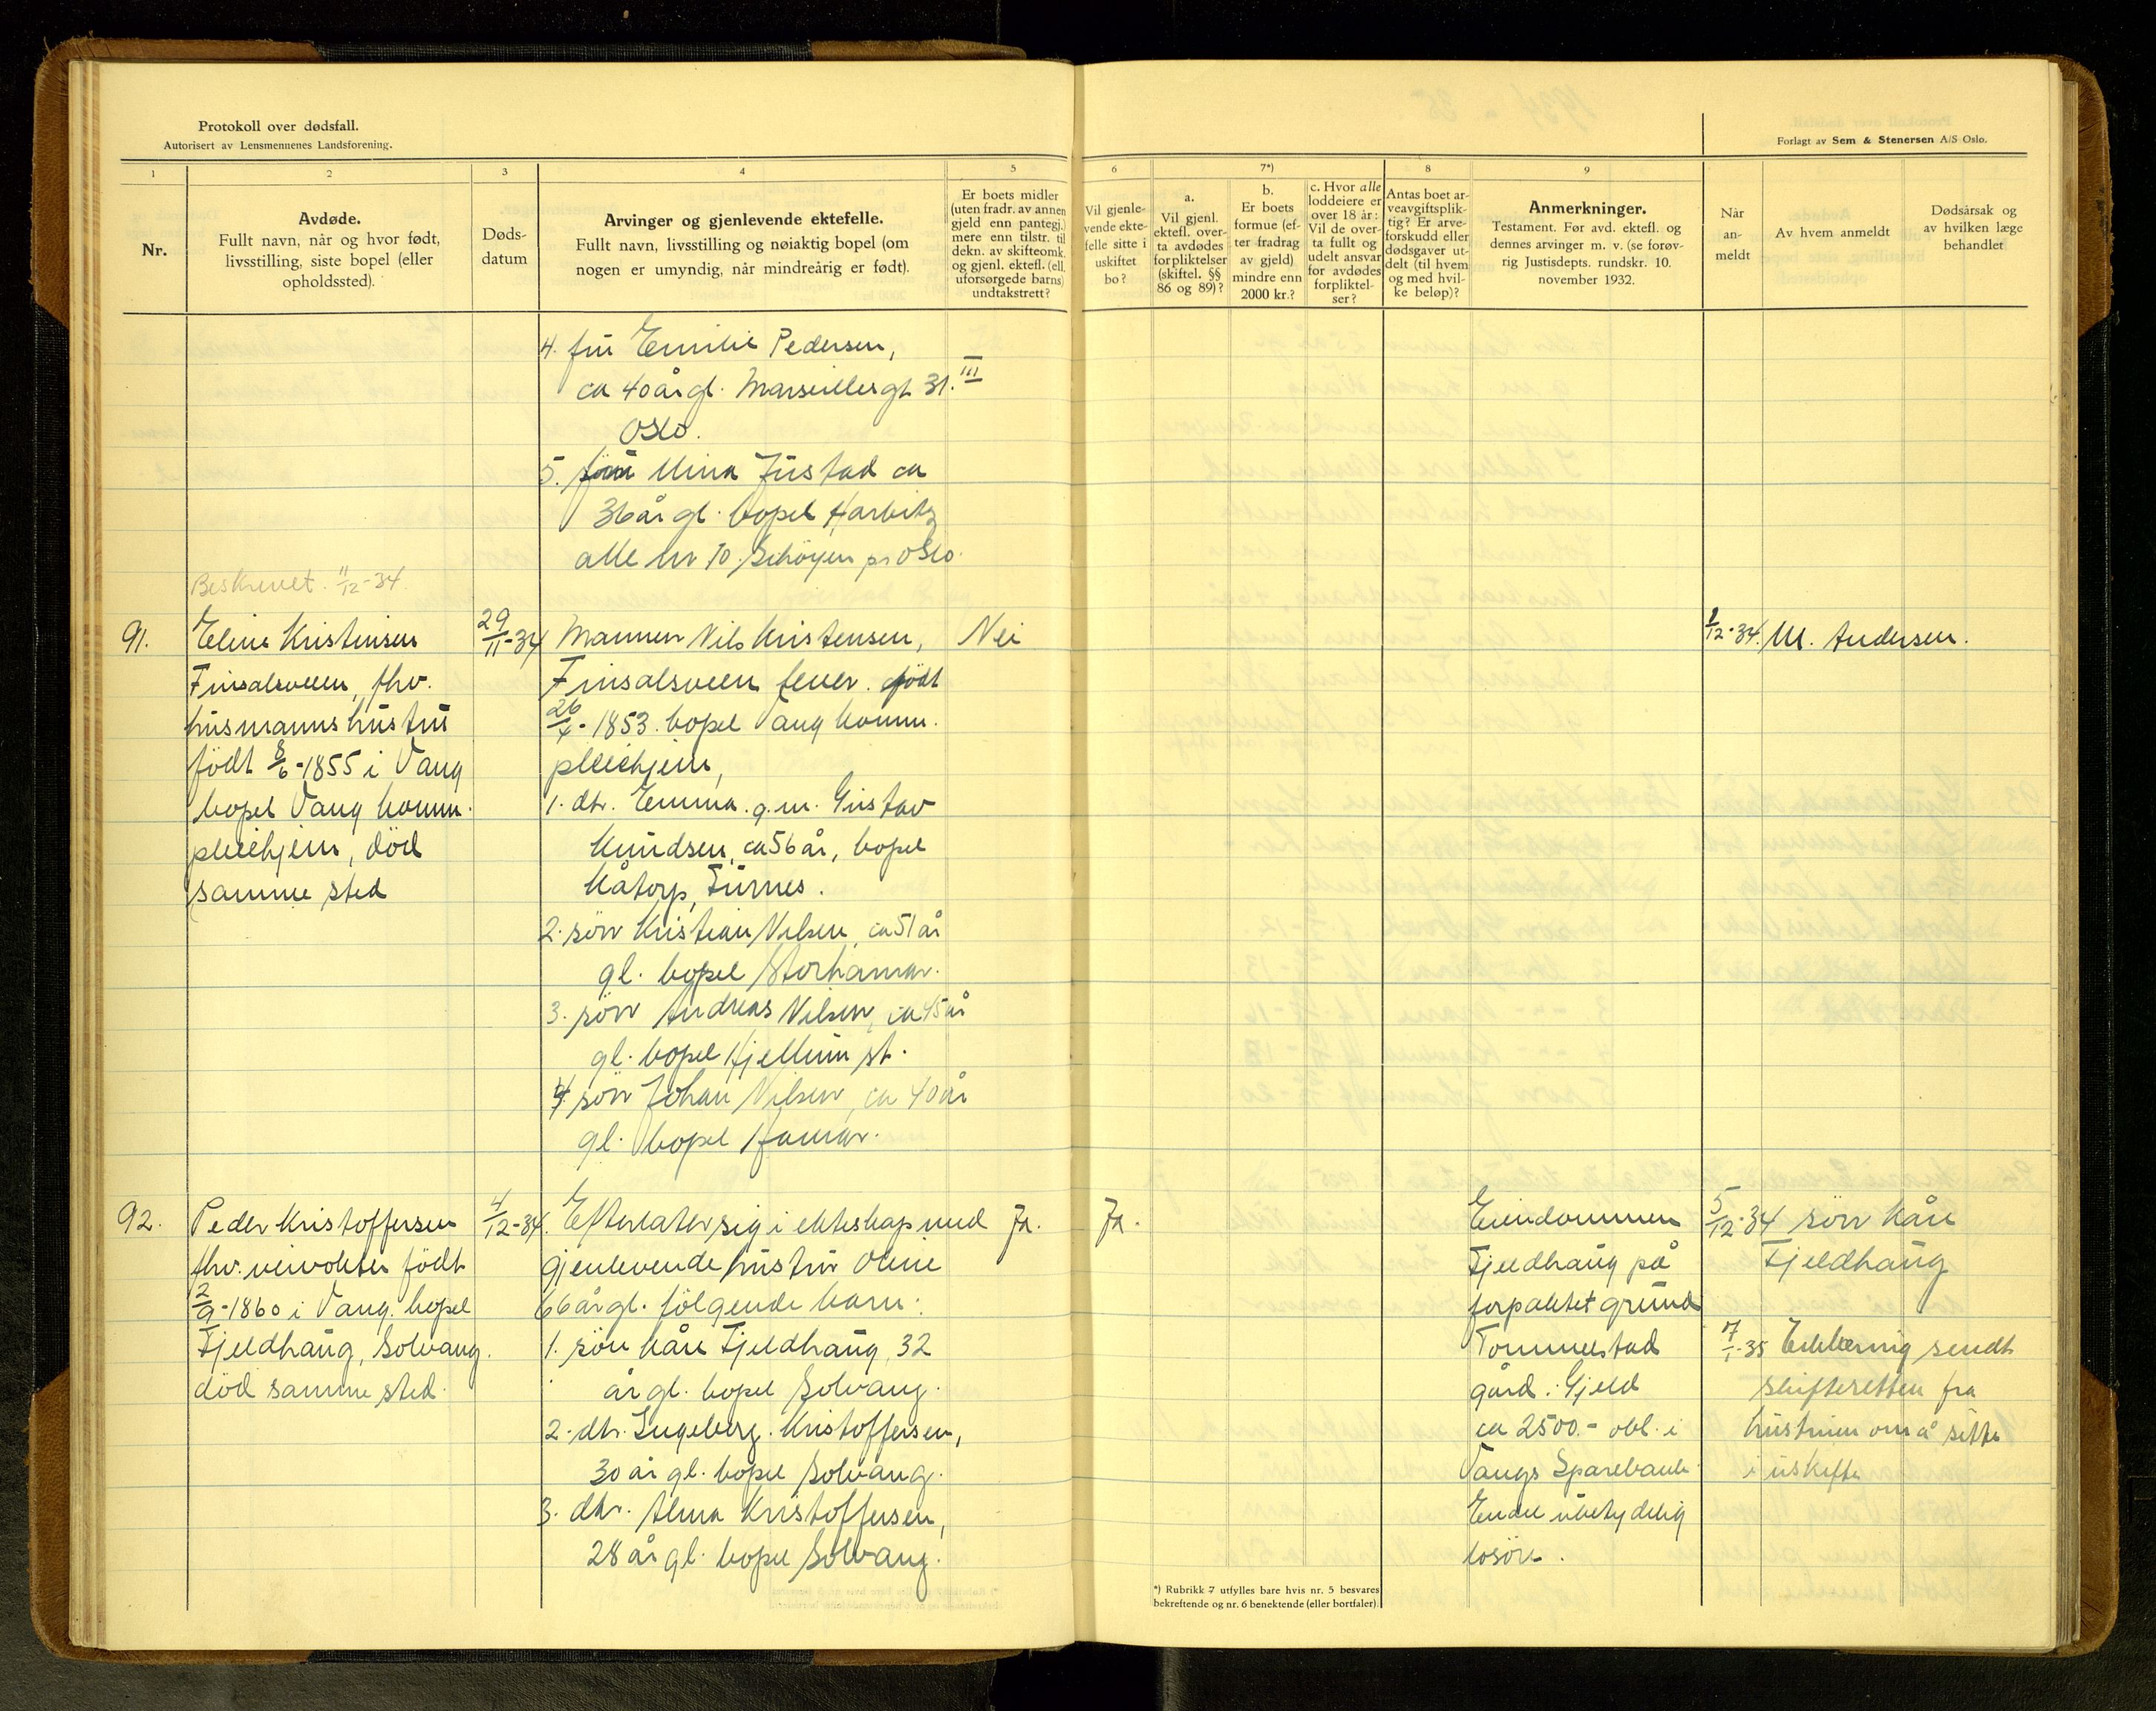 Protokoll over dødsfall.
Autorisert av Lensmennenes Landsforening.
Forlagt av Sem & Stenersen A/S Oslo.
1
2
3
4
5
6
7*)
8
9
Nr.
Avdøde.
Fullt navn, når og hvor født,
livsstilling, siste bopel (eller
opholdssted).
Døds-
datum
Arvinger og gjenlevende ektefelle.
Fullt navn, livsstilling og nøiaktig bopel (om
nogen er umyndig, når mindreårig er født).
Er boets midler
(uten fradr. av annen
gjeld enn pantegj.)
mere enn tilstr. til
dekn. av skifteomk.
og gjenl. ektef. (ell.
uforsørgede barns)
undtakstrett?
Vil gjenle-
vende ekte-
felle sitte i
uskiftet
bo?
a.
Vil gjenl.
ektefl. over-
ta avdødes
forpliktelser
(skiftel. §§
86 og 89)?
b.
Er boets
formue (ef-
ter fradrag
av gjeld)
mindre enn
2000 kr.?
c. Hvor alle
loddeiere er
over 18 år:
Vil de over-
ta fullt og
udelt ansvar
for avdødes
forpliktel-
ser?
Antas boet ar-
veavgiftsplik-
tig? Er arve-
forskudd eller
dødsgaver ut-
delt (til hvem
og med hvil-
ke beløp)?
Anmerkninger.
Testament. Før avd. ektefl. og
dennes arvinger m. v. (se forøv-
rig Justisdepts. rundskr. 10.
november 1932.
Når
an-
meldt
Av hvem anmeldt
Dødsårsak og
av hvilken læge
behandlet
4. fru Emilie Pedersen,
ca 40 år gl. Marseillesgt 31. III
Oslo.
5. fru Mina Justad ca
36 år gl. bopel Harbitz
alle nr 10. Schöyen pr Oslo.
Beskrevet. 11/12-34.
91.
Eline Kristensen
Finsalsveen, fhv.
husmannshustru
født 8/6-1855 i Vang
bopel Vang komm.
pleiehjem, död
samme sted
29/11-34
Mannen Nils Kristensen,
Finsalsveen lever. født
26/4-1853. bopel Vang komm.
pleiehjem,
1. dtr. Emma g.m. Gustav
Knudsen, ca 56 år, bopel
Kåtorp, Furnes.
2. sönn Kristian Nilsen, ca 51 år
gl. bopel Storhamar.
3. sönn Andreas Nilsen, ca 45 år
gl. bopel Hjellum st.
4. sönn Johan Nilsen, ca 40 år
gl. bopel Hamar.
Nei
1/12-34.
M. Andersen.
92.
Peder Kristoffersen
fhv. veivokter født
2/9-1860 i Vang. bopel
Fjeldhaug, Solvang.
död samme sted.
4/12-34.
Efterlater sig i ekteskap med
gjenlevende hustru Oline
66 år gl. følgende barn:
1. sönn Kåre Fjeldhaug, 32
år gl. bopel Solvang.
2. dtr. Ingeberg Kristoffersen,
30 år gl. bopel Solvang.
3. dtr. Alma Kristoffersen,
28 år gl. bopel Solvang.
Ja.
Ja.
Eiendommen
Fjeldhaug på
forpaktet grund
Tommelstad
gård. Gjeld
ca 2500.- obl. i
Vangs Sparebank.
Endel ubetydelig
lösöre.
5/12-34 sönn Kåre
Fjeldhaug
7/1-35 Erklæring sendt
skifteretten fra
hustruen om å sitte
i uskifte
*) Rubrikk 7 utfylles bare hvis nr. 5 besvares
bekreftende og nr. 6 benektende (eller bortfaler).